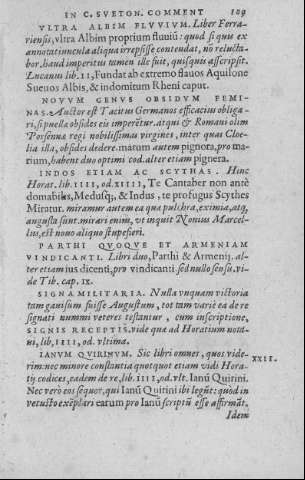 IN C. SVETON. COMMENT 109
VLTRA ALBIM FLVVIVM. Liber Ferra-
riensis, vltra Albim proprium fluuiū: quod si quis ex
annotatiuncula aliqua irrepsisse contendat, nō relucta-
bor, haud imperitus tamen ille fuit, quisquis asscripsit.
Lucanus lib. 11, Fundat ab extremo flauos Aquilone
Sueuos Albis, & indomitum Rheni caput.
NOVVM GENVS OBSIDVM FEMI-
NAS. Auctor est Tacitus Germanos efficacius obliga-
ri, si puellæ obsides eis imperētur. atqui & Romani olim
Porsenna regi nobilissimas virgines, inter quas Cloe-
lia illa, obsides dedere. marum autem pignora, pro ma-
rium, habent duo optimi cod. alter etiam pignera.
INDOS ETIAM AC SCYTHAS. Hinc
Horat. lib. 1111, od. x1111, Te Cantaber non antè
domabilis, Medusq;, & Indus, te profugus Scythes
Miratur. miramur autem ea quæ pulchra, eximia, atq;
augusta sunt. mirari enim, vt inquit Nonius Marcel-
lus, est nouo aliquo stupefieri.
PARTHI QVOQVE ET ARMENIAM
VINDICANTI. Libri duo, Parthi & Armenij. al-
ter etiam ius dicenti, pro vindicanti. sed nullo sensu, vi-
de Tib. cap. ix.
SIGNA MILITARIA. Nulla vnquam victoria
tam gauisum fuisse Augustum, tot tam varie ea de re
signati nummi veteres testantur, cum inscriptione,
SIGNIS RECEPTIS. vide quæ ad Horatium nota-
ni, lib, 1111, od. vltima.
IANVM QVIRINVM. Sic libri omnes, quos vide-
rim: nec minore constantia quotquot etiam vidi Hora-
tij codices, eadem de re, lib. 1111, od. vlt. Ianū Quirini.
Nec verò eos sequor, qui Ianū Quirini ibi legūt: quòd in
vetusto exēplari earum pro Ianū scriptū esse affirmāt.
XXII.
Idem